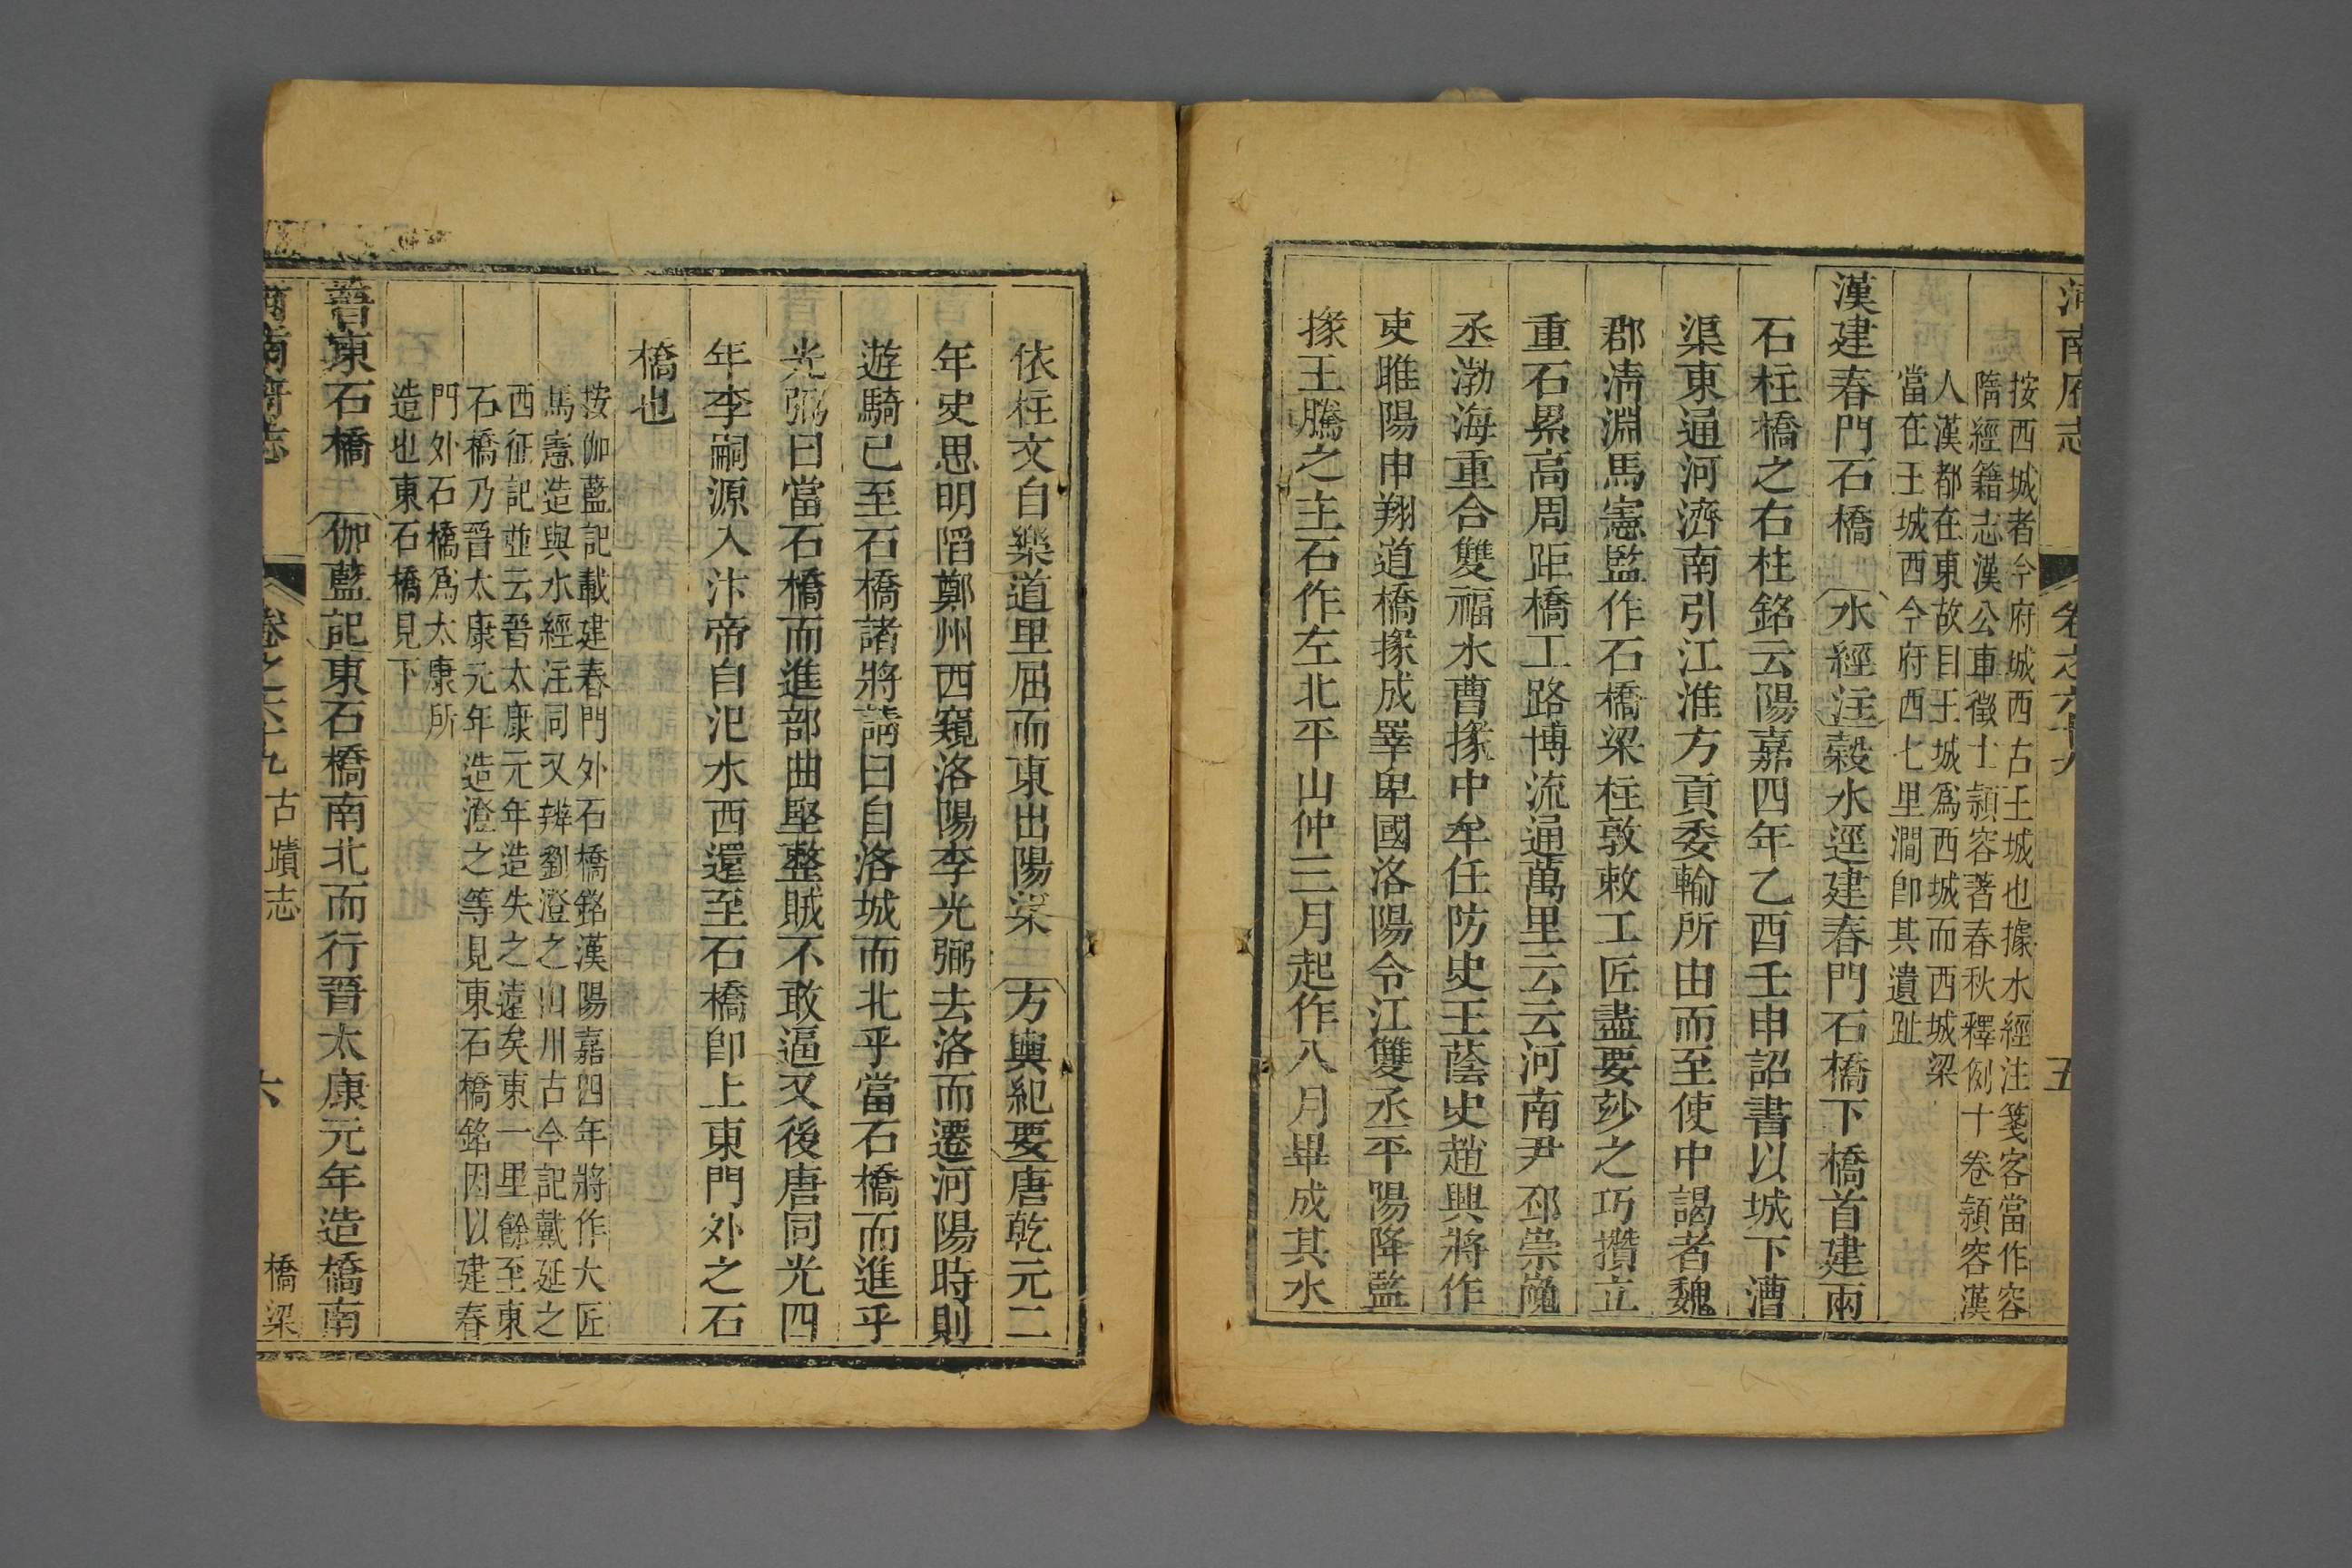 河南府志
卷之六十九
五
按西城者今府城西古王城也據水經注箋客當作容
隋經籍志漢公車徵士潁容著春秋釋例十卷潁容漢
人漢都在東故目王城爲西城而西城梁
當在王城西今府西七里澗卽其遺趾
漢建春門石橋〔水經注〕穀水逕建春門石橋下橋首建兩
石柱橋之右柱銘云陽嘉四年乙酉壬申詔書以城下漕
渠東通河濟南引江淮方貢委輸所由而至使中謁者魏
郡淸淵馬憲監作石橋梁柱敦敕工匠盡要玅之巧攢立
重石累高周距橋工路博流通萬里云云河南尹邳崇隗
丞渤海重合雙福水曹掾中牟任防史王蔭史趙興將作
吏睢陽申翔道橋掾成睪卑國洛陽令江雙丞平陽降監
掾王騰之主石作左北平山仲三月起作八月畢成其水
依柱文自樂道里屈而東出陽渠〔方輿紀要〕唐乾元二
年史思明䧟鄭州西窺洛陽李光弼去洛而遷河陽時則
遊騎已至石橋諸將請曰自洛城而北乎當石橋而進乎
光弼曰當石橋而進部曲堅整賊不敢逼又後唐同光四
年李嗣源入汴帝自汜水西還至石橋卽上東門外之石
橋也
按伽藍記載建春門外石橋銘漢陽嘉四年將作大匠
馬憲造與水經注同又辨劉澄之山川古今記戴延之
西征記並云晉太康元年造失之遠矣東一里餘至東
石橋乃晉太康元年造澄之等見東石橋銘因以建春
門外石橋爲太康所
造也東石橋見下
晉東石橋〔伽藍記〕東石橋南北而行晉太康元年造橋南
河南府志
卷之六十九
古蹟志
六
橋梁